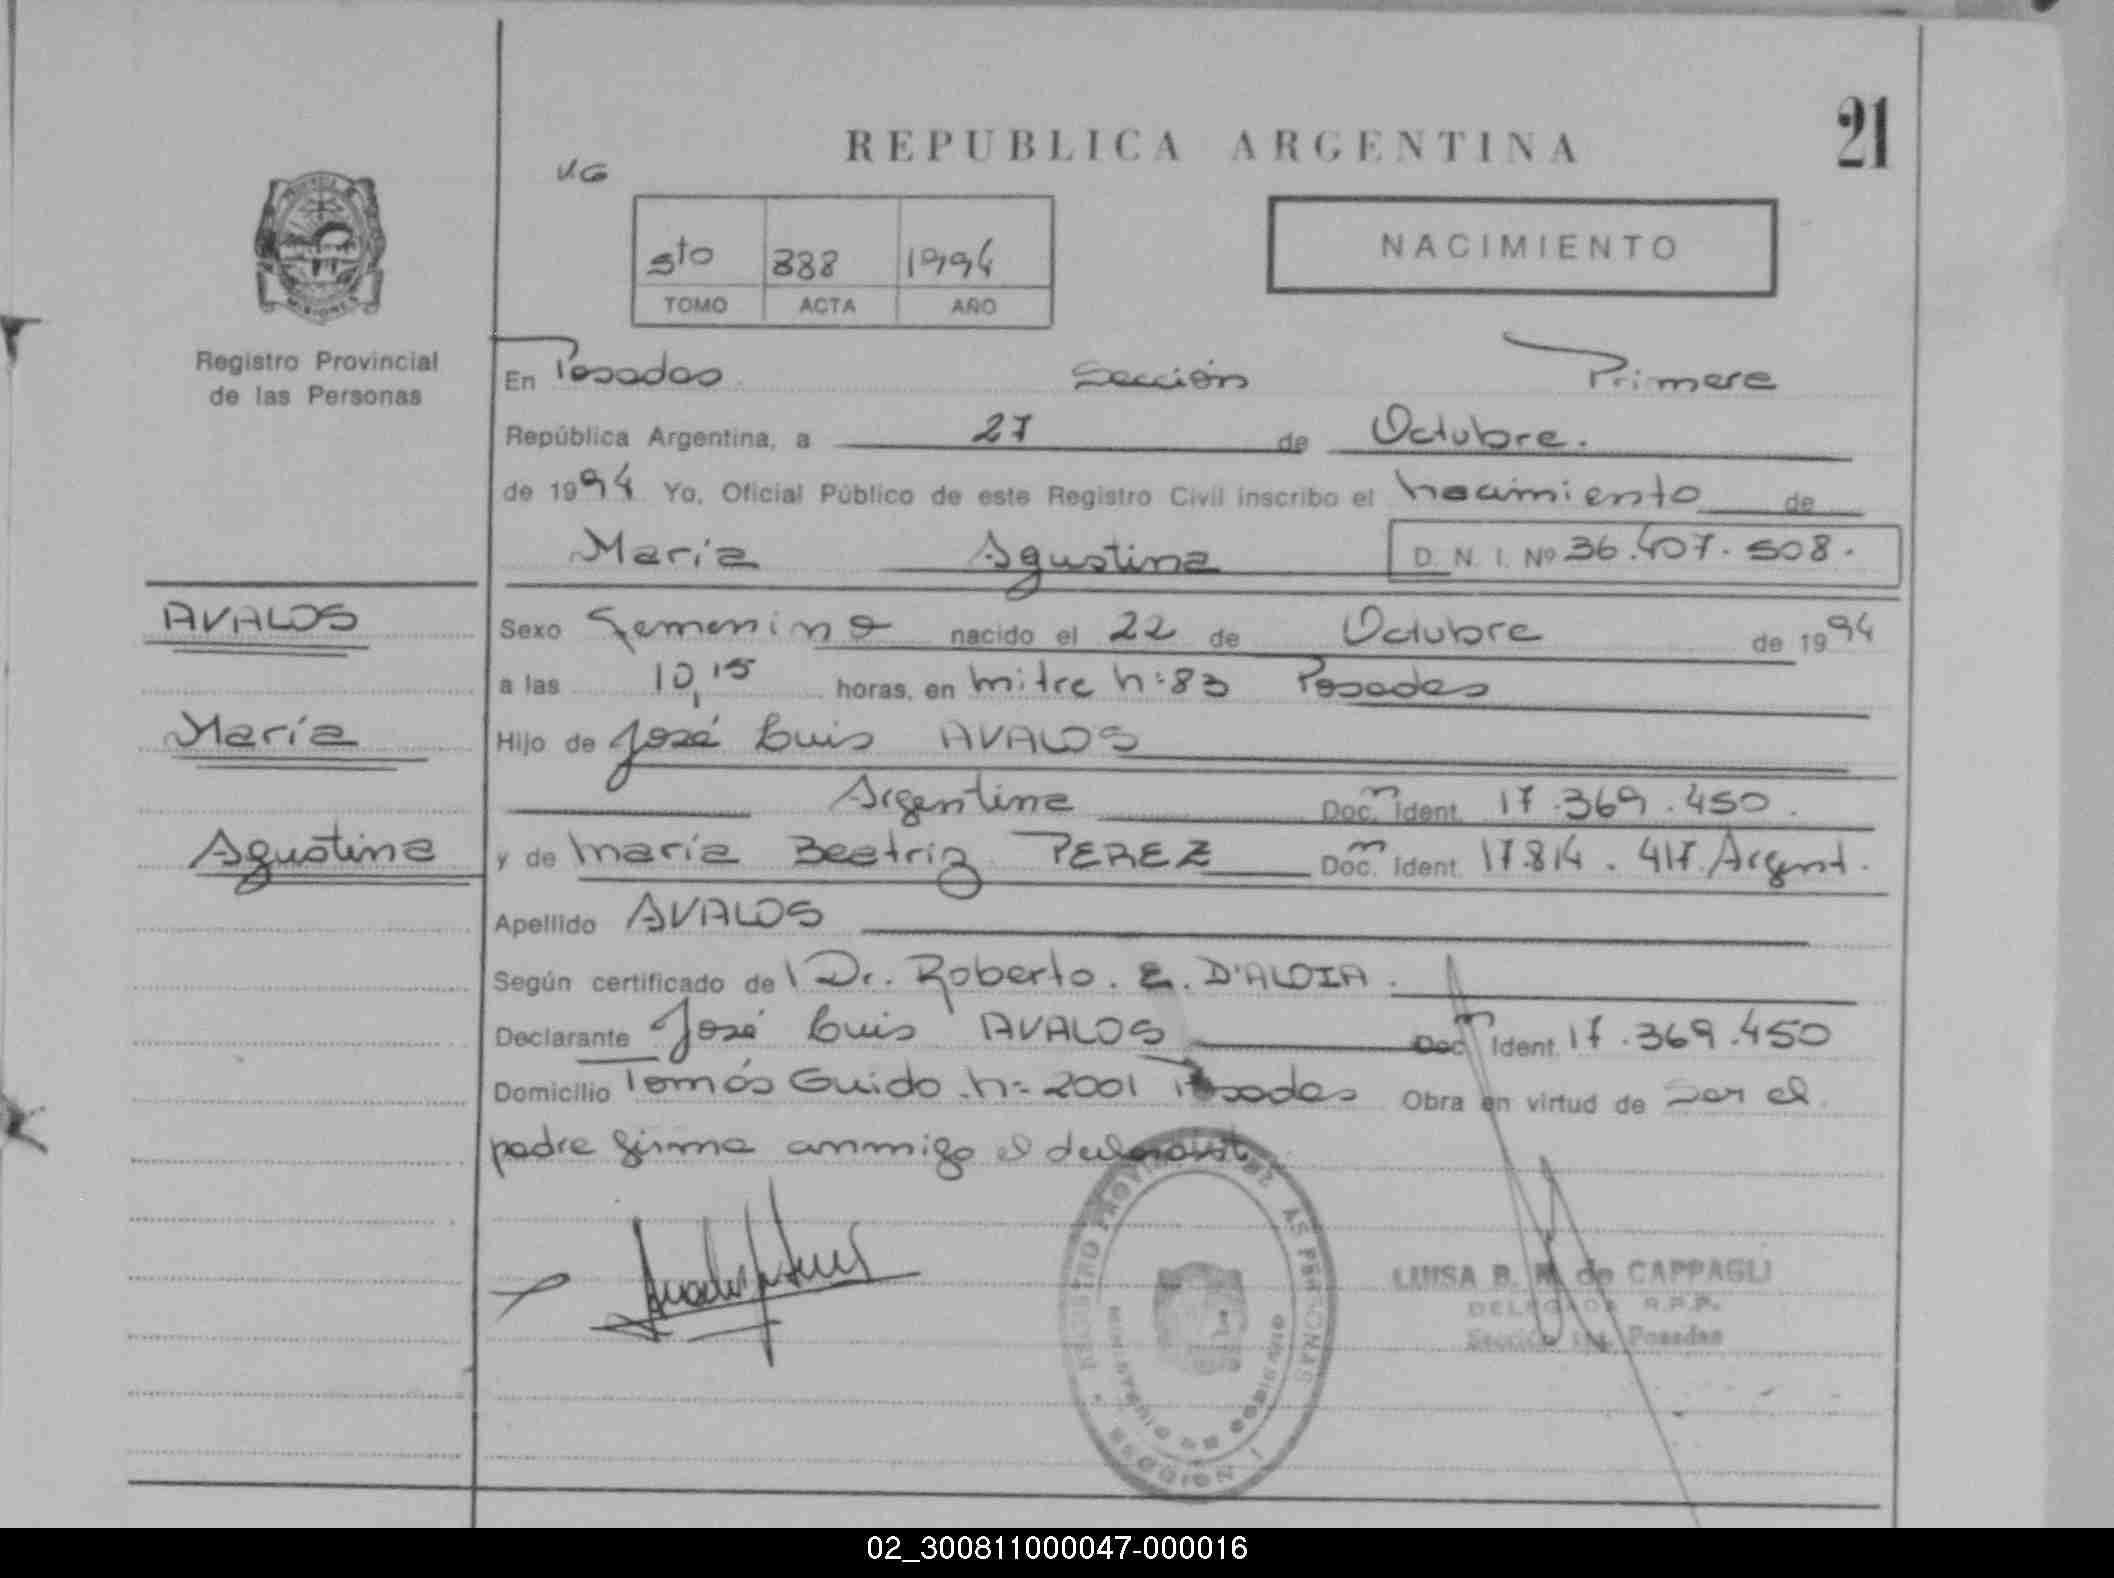 21
REPUBLICA ARGENTINA
V.G
NACIMIENTO
5to 888 1994
TOMO ACTA AÑO
MISIONES
Registro Provincial
de las Personas
En Posadas Sección Primera
República Argentina, a 27 de Octubre.
de 1994 Yo, Oficial Público de este Registro Civil inscribo el nacimiento de
María Agustina D. N. I. Nº 36.407.508.
AVALOS
María
Agustina
Sexo Femenino nacido el 22 de Octubre de 1994
a las 10,15 horas, en mitre nº 83 Posadas
Hijo de José Luis AVALOS
Argentina Doc. m Ident. 17.369.450.
y de María Beatriz PEREZ Doc. m Ident. 17.814.417. Argent.
Apellido AVALOS
Según certificado de Dr. Roberto. E. D'ALOIA.
Declarante José Luis AVALOS Doc. m Ident. 17.369.450
Domicilio Tomás Guido nº 2001 Posadas Obra en virtud de ser el
padre firma conmigo el
REGISTRO PROVINCIAL DE LAS PERSONAS
MINISTERIO DE GOBIERNO
SECCION I
LUISA B. de CAPPAGLI
DELEGADA R.P.P.
Sección 1ra. Posadas
02_300811000047-000016